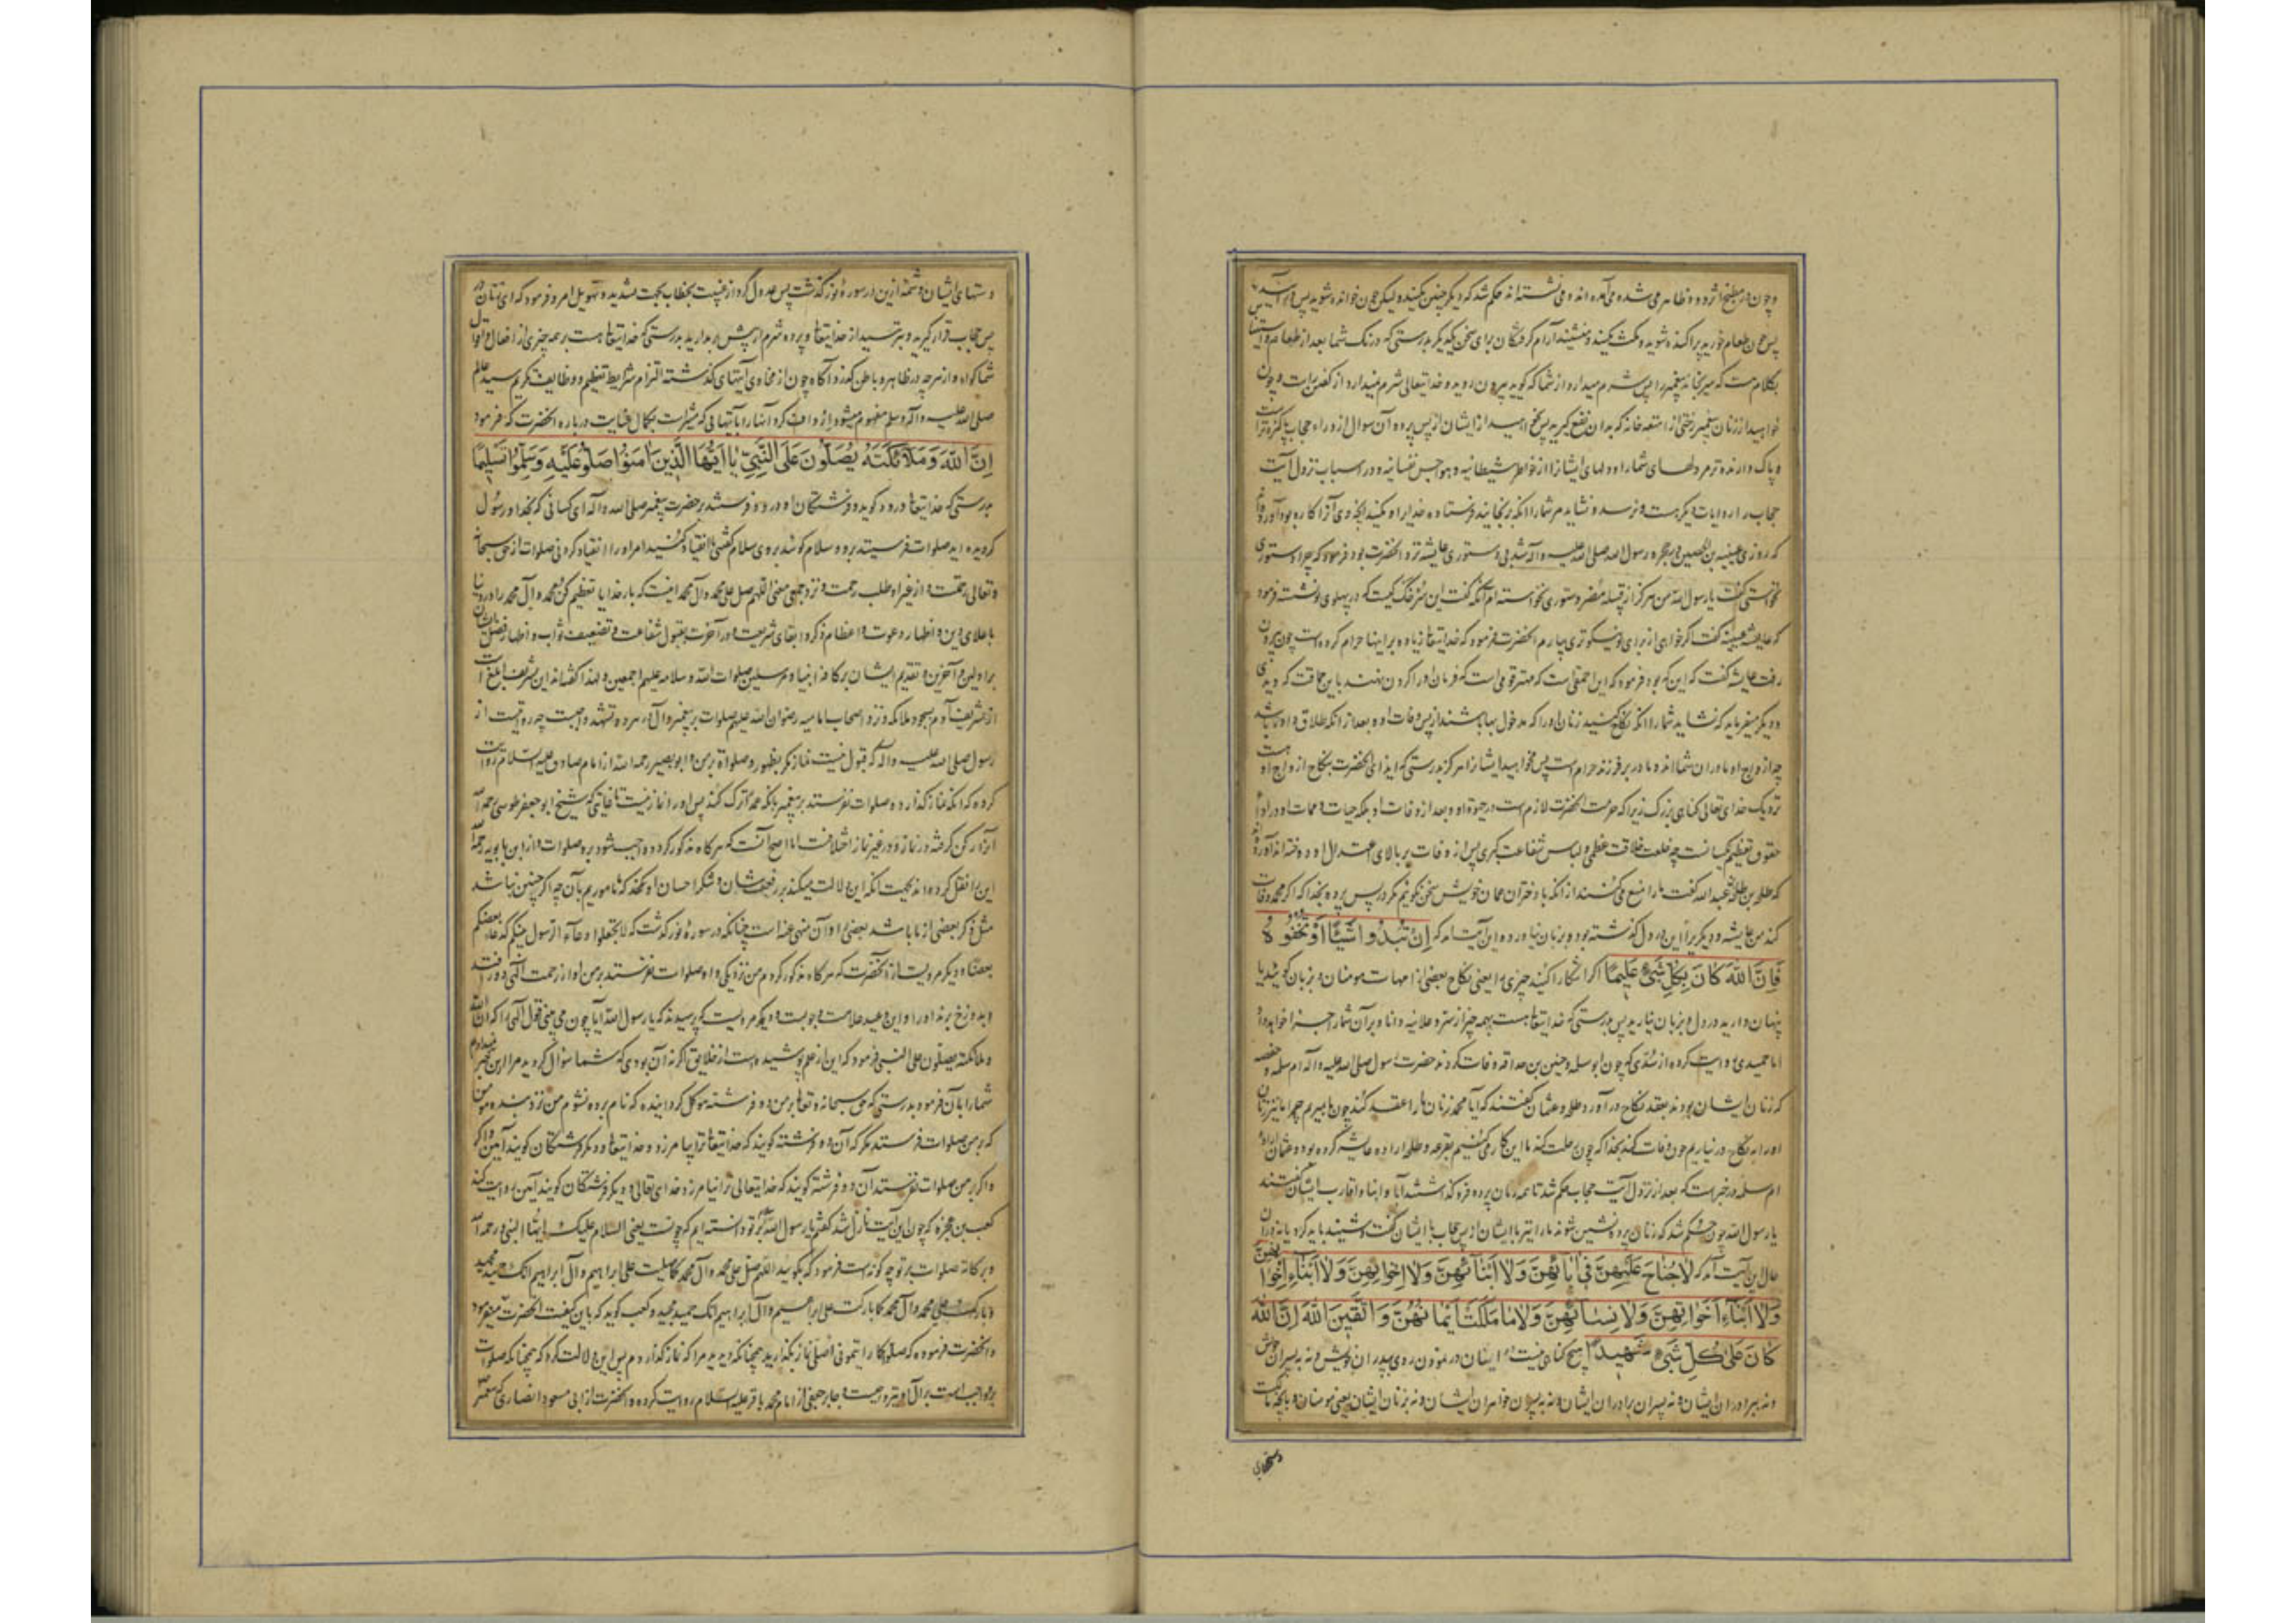 و چون در مطبخ اثر دود ظاهر می شده می آمده اند و می نشسته اند حکم شد که دیگر چنین مکنید ولیکن چون خوانده شوید پس در آیید
پس چون طعام خورید پراکنده شوید و مکث مکنید و منشینید آرام گرفتگان برای سخن یکدیگر بدرستی که درنک شما بعد از طعام
بکلام هست که میرنجاند پیغمبر را پس شرم میدارد از شما که گوید بیرون روید و خدایتعالی شرم نمیدارد از گفتن راست و چون
خواهید از زنان پیغمبر رختی از امتعه خانه که بدان نفع گیرید پس بخواهید از ایشان از پس پرده آن سوال از وراء حجاب پاکیزه تر است
و پاک دارنده تر مر دلهای شما را و دلهای ایشانرا از خواطر شیطانیه و هواجس نفسانیه و در اسباب نزول آیت
حجاب روایات دیگر هست و نرسد و نشاید مر شما را انکه برنجانید فرستاده خدایرا و مکنید انچه وی آنرا کاره بود آورده اند
که روزی عیینه بن الحصین در حجره رسول الله صلی الله علیه و آله شد بی دستوری عایشه نزد انحضرت بود فرمود که چرا دستوری
نخواستی گفت یا رسول الله من هرکز از قبیله مضر دستوری نخواسته ام آنکه گفت این سرخ رنگ کیست که در پهلوی تو نشسته فرمود
که عایشه عیینه گفت اگر خواهی از برای تو نیکوتری بیارم انحضرت فرمود که خدایتعا زیاده بر اینها حرام کرده است چون بیرون
رفت عایشه گفت که این که بود فرمود که این احمقی است که مهتر قومی است که فرمان او را گردن نهند باین حماقت که دیدی
و دیگر میفرماید که نشاید شما را انکه نکاح کنید زنان او را که مدخول بها باشند از پس وفات او و بعد از انکه طلاق داده باشد
چه ازواج او مادران شما اند و مادر بر فرزند حرام است پس مخواهید ایشانرا هرکز بدرستی که ایذای انحضرت بنکاح ازواج او هست
نزدیک خدای تعالی گناهی بزرگ زیرا که حرمت انحضرت لازم است در حیوة او و بعد از وفات او بلکه حیات و ممات او در ادای
حقوق تعظیم یکسانست چه خلعت خلافت عظمی و لباس شفاعت کبری پس از وفات بر بالای اعتدال او دوخته اند آورده
که طلحه بن عبد الله گفت ما را منع می کنند از انکه با دختران عمان خویش سخن گوییم مگر در پس پرده بخدا که اگر محمد وفات
کند من عایشه و دیگر برا این در دل گذشته بود و بر زبان نیاورده این آیت آمد که إِنْ تُبْدُوا شَيْئًا أَوْ تُخْفُوهُ
فَإِنَّ اللّٰهَ كَانَ بِكُلِّ شَيْءٍ عَلِيمًا اگر آشکارا کنید چیزی را یعنی نکاح بعضی از امهات مومنان و بزبان گویید یا
پنهان دارید در دل و بزبان نیارید پس بدرستی که خدایتعا هست بهمه چیز از سر و علانیه دانا و بر آن شما را جزا خواهد داد
اما حمیدی روایت کرده از سُدّی که چون ابوسلمه و خنیس بن حذاقه وفات کردند حضرت رسول صلی الله علیه و آله ام سلمه و حفصه
که زنان ایشان بودند بعقد نکاح در آورد طلحه و عثمان گفتند که آیا محمد زنان ما را عقد کند چون ما بمیریم چرا ما نیز زنان
او را به نکاح در نیاریم چون وفات کند بخدا که چون رحلت کند ما این کار می کنیم بقرعه و طلحه اراده عایشه کرده بود و عثمان اراده
ام سلمه در خبرست که بعد از نزول آیت حجاب حکم شد تا همه زنان پرده فرو گذاشتند آبا و ابنا و اقارب ایشان گفتند
یا رسول الله چون حکم شد که زنان پرده نشین شوند ما را نیز با ایشان از پس حجاب با ایشان گفت و شنید باید کرد یا نه در آن
حال این آیت آمد که لَا جُنَاحَ عَلَيْهِنَّ فِي آبَائِهِنَّ وَلَا أَبْنَائِهِنَّ وَلَا إِخْوَانِهِنَّ وَلَا أَبْنَاءِ إِخْوَانِهِنَّ
وَلَا أَبْنَاءِ أَخَوَاتِهِنَّ وَلَا نِسَائِهِنَّ وَلَا مَا مَلَكَتْ أَيْمَانُهُنَّ وَاتَّقِينَ اللّٰهَ إِنَّ اللّٰهَ
كَانَ عَلَىٰ كُلِّ شَيْءٍ شَهِيدًا هیچ گناهی نیست بر ایشان در نمودن روی به پدران خویش و نه به پسران خویش
و نه ببرادران ایشان و نه پسران برادران ایشان و نه به پسران خواهران ایشان و نه بزنان ایشان یعنی مومنان و بانچه مالکست
دستهای
دستهای ایشان و شمه ازین در سوره نور گذشت پس عدول کرد از غیبت بخطاب بجهت تشدید و تهویل امر و فرمود که ای زنان در
پس حجاب قرار گیرید و بترسید از خدایتعا و پرده شرم از پیش بر مدارید بدرستی که خدایتعا هست بر همه چیزی از افعال و اقوال
شما گواه و از هر چه در ظاهر و باطن گذرد آگاه چون از فحاوی آیتهای گذشته التزام شرایط تعظیم و وظایف تکریم سید عالم
صلی الله علیه و آله و سلم مفهوم میشود ارداف کرد آنها را بآیتهائی که مشعرست بکمال عنایت درباره انحضرت که فرمود
إِنَّ اللّٰهَ وَمَلَائِكَتَهُ يُصَلُّونَ عَلَى النَّبِيِّ يَا أَيُّهَا الَّذِينَ آمَنُوا صَلُّوا عَلَيْهِ وَسَلِّمُوا تَسْلِيمًا
بدرستی که خدایتعا درود گوید و فرشتگان او درود فرستند بر حضرت پیغمبر صلی الله و آله ای کسانی که بخدا و رسول
گرویده اید صلوات فرستید برو و سلام گویید بروی سلام گفتنی یا انقیاد کنید امر او را انقیاد کردنی صلوات از حق سبحانه
و تعالی رحمت و از غیر او طلب رحمت و نزد جمعی معنی اللهم صل علی محمد و آل محمد اینست که بار خدایا تعظیم کن محمد و آل محمد را در دنیا
باعلای دین و اظهار دعوت و اعظام ذکر و ابقای شریعت و در آخرت بقبول شفاعت و تضعیف ثواب و اظهار فضل ایشان
بر اولین و آخرین و تقدیم ایشان بر کافه انبیا و مرسلین صلوات الله و سلامه علیهم اجمعین و لهذا گفته اند این تشریف ابلغ است
از تشریف آدم بسجود ملائکه و نزد اصحاب امامیه رضوان الله علیهم صلوات بر پیغمبر و آل در هر دو تشهد واجبست چه روایتست از
رسول صلی الله علیه و آله که قبول نیست نماز مگر بطهور و صلوات بر من و ابو بصیر رحمه الله از امام صادق علیه السلام روایت
کرده که انکه نماز گذارد و صلوات نفرستد بر پیغمبر بانکه عمدا ترک کند پس او را نماز نیست تا غایتی که شیخ ابو جعفر طوسی رحمه الله
آنرا رکن گرفته در نماز و در غیر نماز اختلافست اما اصح آنست که هر گاه مذکور گردد واجب شود برو صلوات و از ابن بابویه رحمه الله
این را نقل کرده اند بجهت انکه این دلالت میکند بر رفعت شان و شکر احسان او کنند که ما موریم بآن چه اگر چنین نباشد
مثل ذکر بعضی از ما باشد بعضی را و آن منهی عنه است چنانکه در سوره نور گذشت که لا تجعلوا دعاء الرسول بینکم کدعاء بعضکم
بعضا و دیگر مرویست از انحضرت که هر گاه مذکور گردم من نزد یکی و او صلوات نفرستد بر من او از رحمت الهی دور افتد
و بدوزخ برند او را و این وعید علامت وجوبست و دیگر مرویست که پرسیدند که یا رسول الله آیا چون می بینی قول الهی را که ان الله
و ملائکته یصلون علی النبی فرمود که این از علم پوشیده است از خلایق اگر نه آن بودی که شما سؤال کردید مرا ازین خبر نمیدادم
شما را بآن فرمود بدرستی که حق سبحانه و تعا بر من دو فرشته موکل گردانیده که نام برده نشوم من نزد بنده مومن
که بر من صلوات فرستد مگر که آن دو فرشته گویند که خدایتعا ترا بیامرزد و خدایتعا و دیگر فرشتگان گویند آمین
و اگر بر من صلوات نفرستد آن دو فرشته گویند که خدایتعالی ترا نیامرزد خدای تعالی و دیگر فرشتگان گویند آمین روایت کند
کعب بن عجره که چون این آیت نازل شد گفتم یا رسول الله سلام بر تو دانسته ایم که چونست یعنی السلام علیک ایها النبی و رحمه الله
و برکاته صلوات بر تو چه گونه است فرمود که بگویید اللهم صل علی محمد و آل محمد کما صلیت علی ابراهیم و آل ابراهیم انک حمید مجید
و بارک علی محمد و آل محمد کما بارکت علی ابراهیم و آل ابراهیم انک حمید مجید و کعب گوید که باین کیفیت انحضرت میفرمود
و انحضرت فرموده که صلوا کما رایتمونی اصلی نماز بگذارید همچنانکه دیدید مرا که نماز گذاردم پس این دلالت کرد که همچنانکه صلوات
برو واجب است بر آل او نیز واجبست و جابر جعفی از امام محمد باقر علیه السلام روایت کرده و انحضرت از ابی مسعود انصاری که پیغمبر